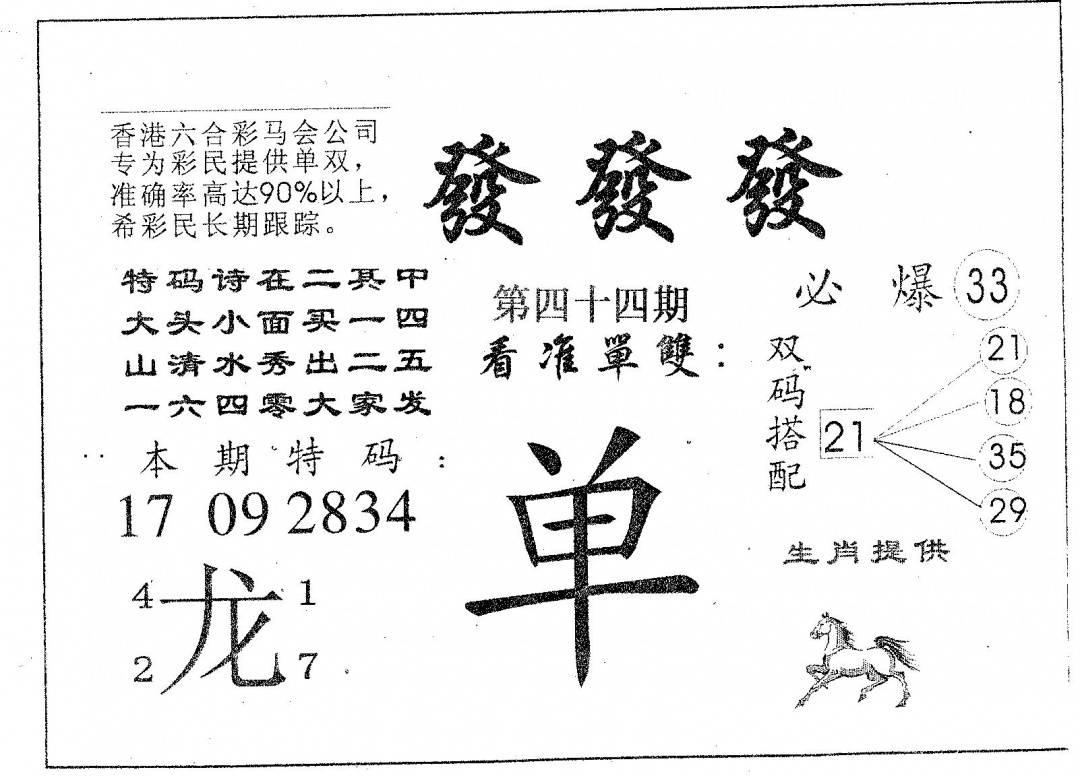 香港六合彩马会公司
专为彩民提供单双，
准确率高达90%以上，
希彩民长期跟踪。
發 發 發
特码诗在二其中
大头小面买一四
山清水秀出二五
一六四零大家发
第四十四期
看准單雙：
必 爆 33
双码搭配
21
21
18
35
29
本期特码：
17 09 2834
单
4 龙 1
2 7
生肖提供